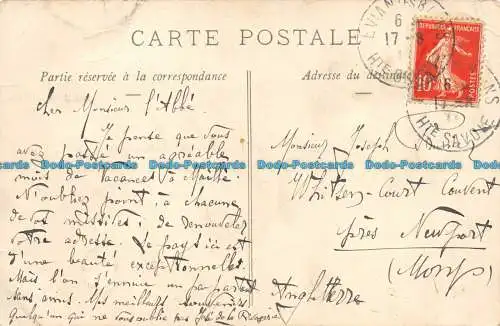 CARTE POSTALE
Partie réservée à la correspondance
Adresse du destinataire
EVIAN-LES-B
6
17 - 8
HTE SAVOIE
RÉPUBLIQUE FRANÇAISE
10
POSTES
Cher Monsieur l'Abbé
Je pense que vous
avez passé un agréable
mois de vacances à
N'oubliez point à chacune
de vos missives de renouveler
votre adresse. Le pays ici est
d'une beauté exceptionnelle.
Mais l'on s'ennuie un peu
sans amis. Mes meilleurs souvenirs
Quelqu'un qui ne vous oublie pas de la
Monsieur Joseph
Whitson-Court Convent
près Newport
(Mons)
Angleterre
Dodo-Postcards.com